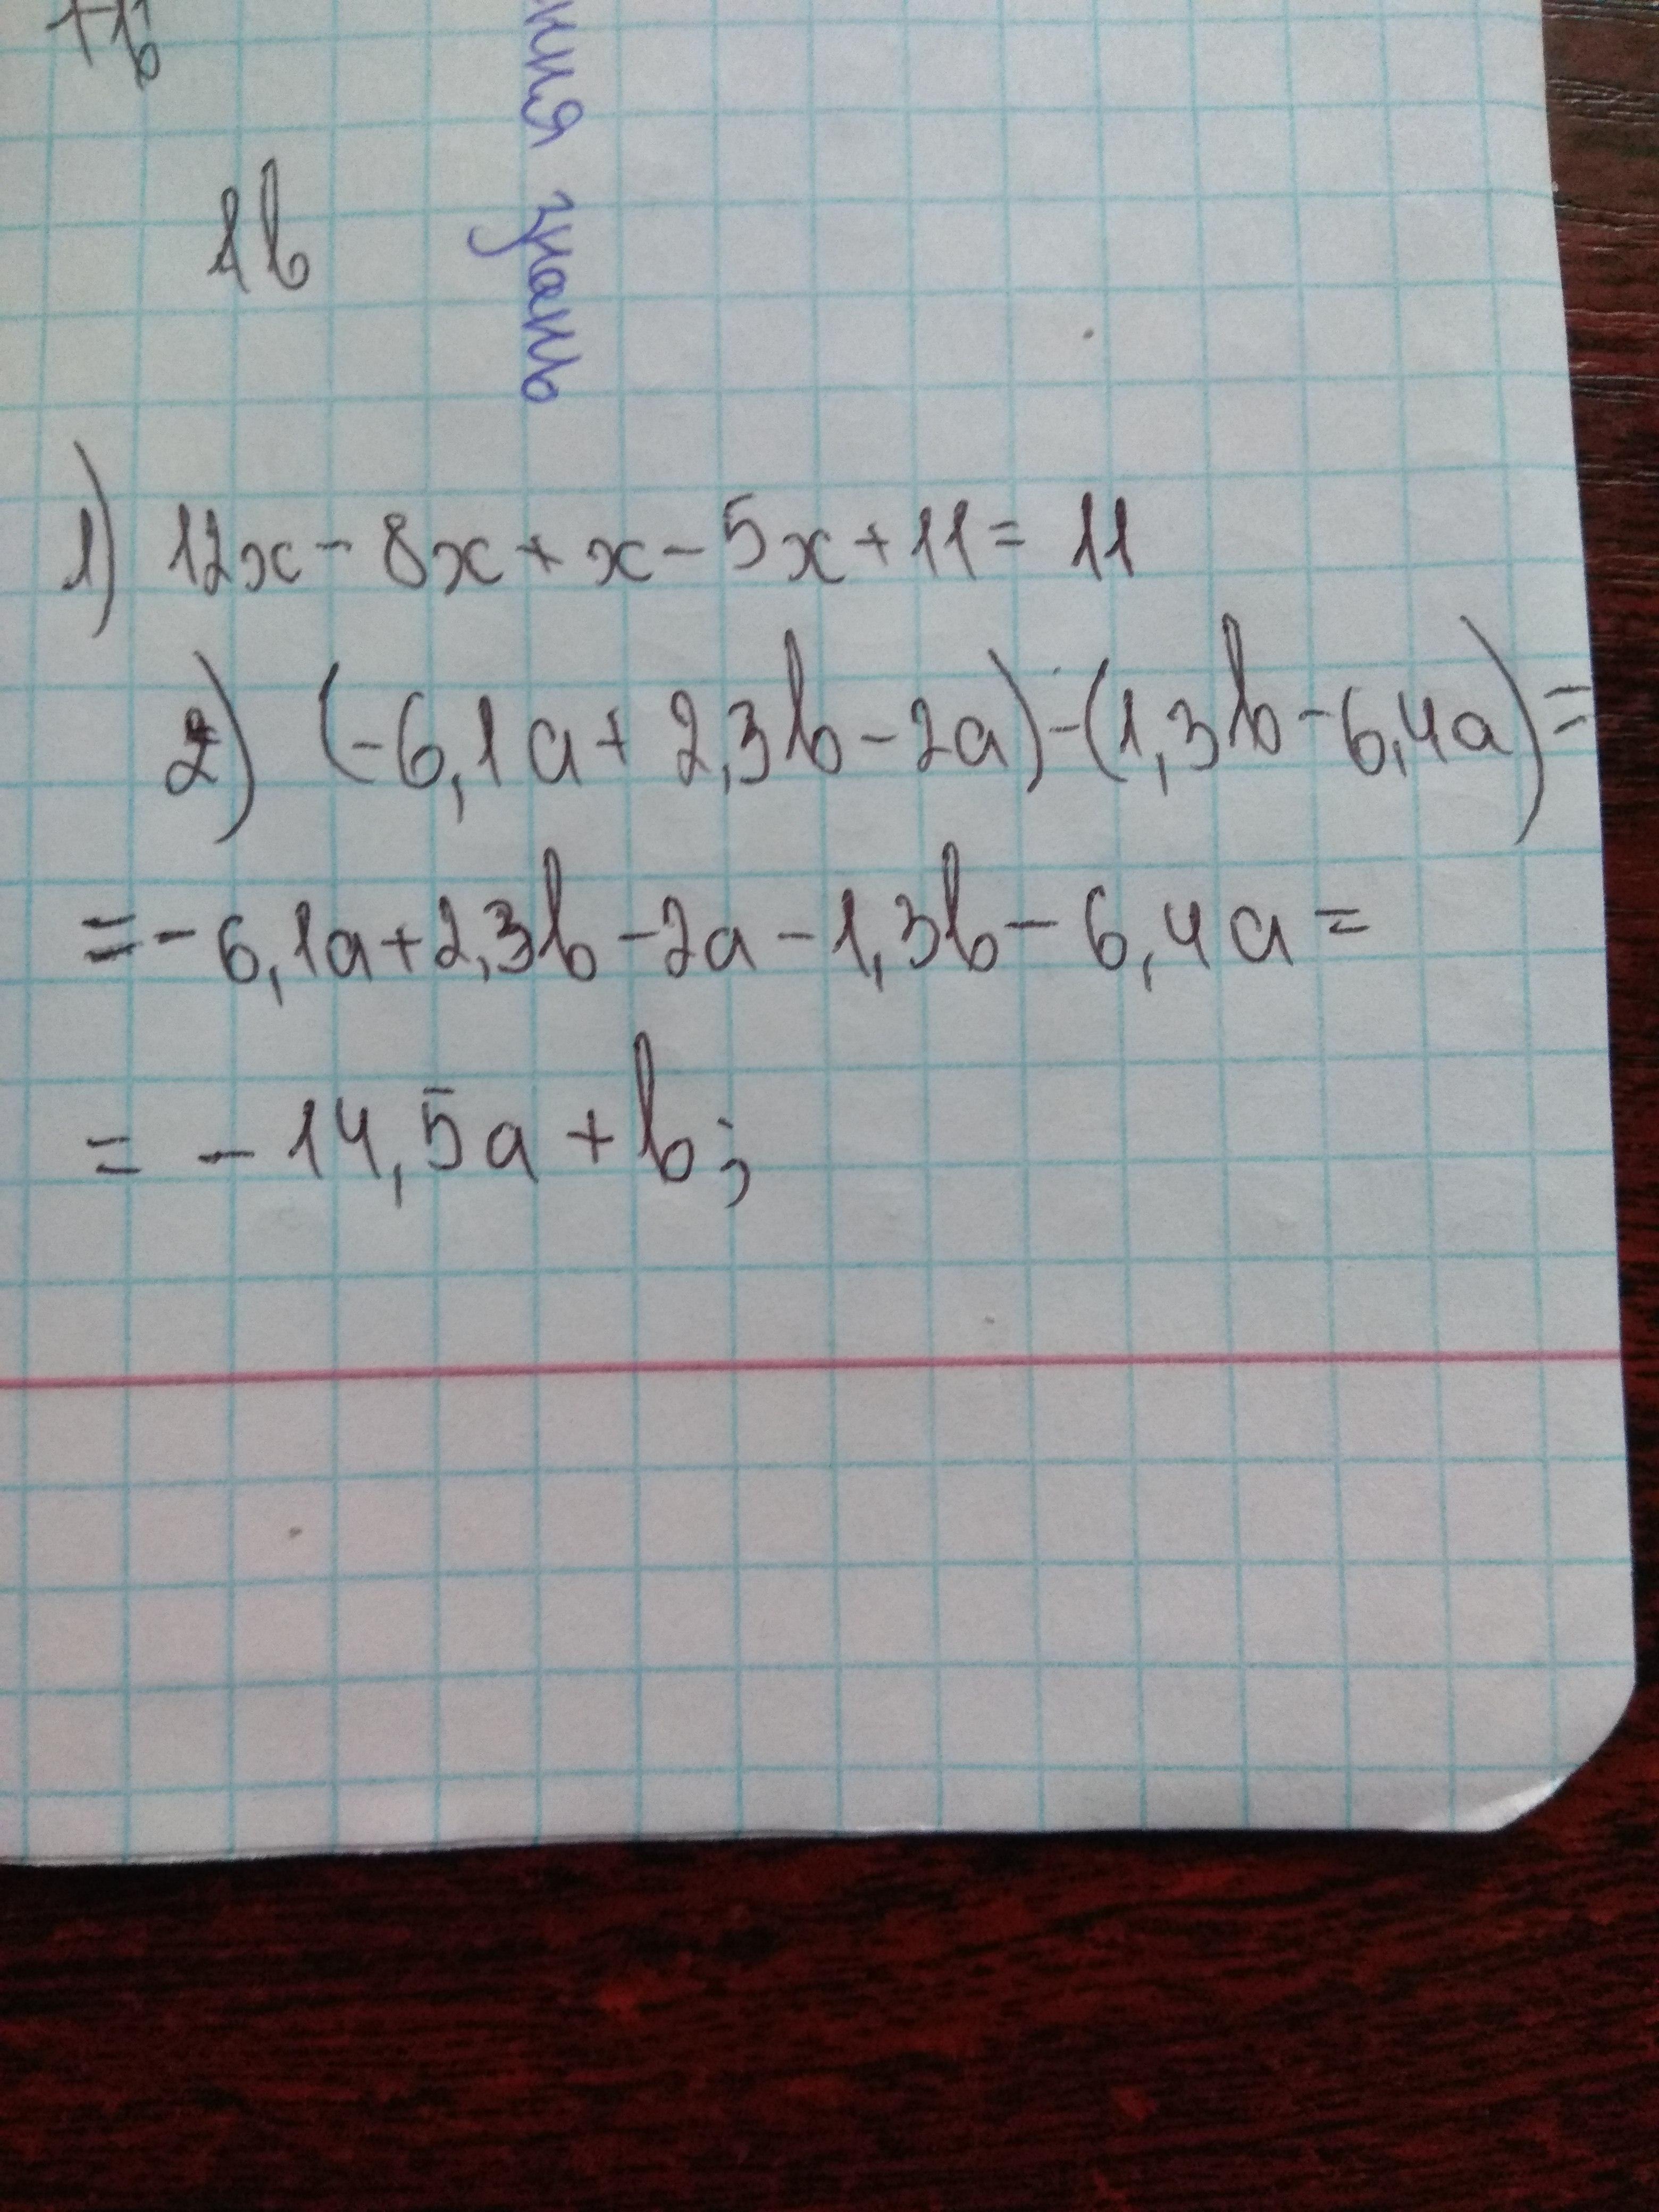 1b
знань
1) 12x - 8x + x - 5x + 11 = 11
2) (-6,1a + 2,3b - 2a) - (1,3b - 6,4a) =
= - 6,1a + 2,3b - 2a - 1,3b - 6,4a =
= - 14,5a + b;